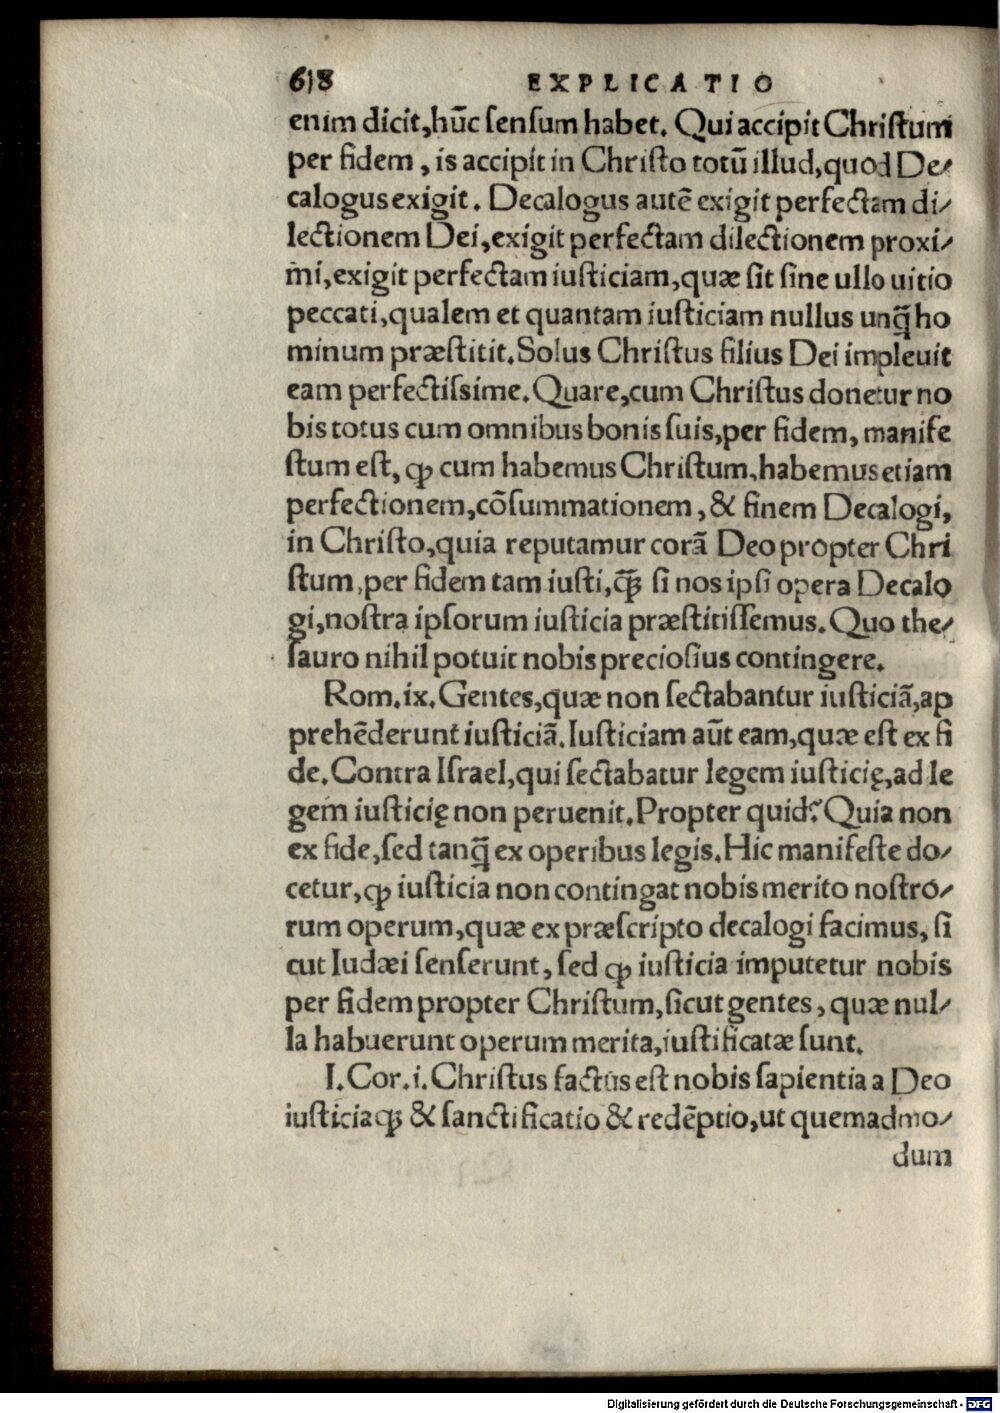 618 EXPLICATIO
enim dicit,hūc ſenſum habet. Qui accipit Chriſtum
per fidem, is accipit in Chriſto totū illud,quod De⸗
calogus exigit. Decalogus autē exigit perfectam di⸗
lectionem Dei,exigit perfectam dilectionem proxi⸗
mi,exigit perfectam iuſticiam,quæ ſit ſine ullo uitio
peccati,qualem et quantam iuſticiam nullus unq̄ ho
minum præſtitit.Solus Chriſtus filius Dei impleuit
eam perfectiſsime.Quare,cum Chriſtus donetur no
bis totus cum omnibus bonis ſuis,per fidem, manife
ſtum eſt, ꝙ cum habemus Chriſtum,habemus etiam
perfectionem,cōſummationem, & finem Decalogi,
in Chriſto,quia reputamur corā Deo propter Chri
ſtum,per fidem tam iuſti,q̄ꝫ ſi nos ipſi opera Decalo
gi,noſtra ipſorum iuſticia præſtitiſſemus. Quo the⸗
ſauro nihil potuit nobis precioſius contingere.
Rom.ix.Gentes,quæ non ſectabantur iuſticiā,ap
prehēderunt iuſticiā.Iuſticiam aūt eam,quæ eſt ex fi
de.Contra Iſrael,qui ſectabatur legem iuſticię,ad le
gem iuſticię non peruenit.Propter quid? Quia non
ex fide,ſed tanq̄ ex operibus legis.Hic manifeſte do⸗
cetur,ꝙ iuſticia non contingat nobis merito noſtro⸗
rum operum,quæ ex præſcripto decalogi facimus, ſi
cut Iudæi ſenſerunt, ſed ꝙ iuſticia imputetur nobis
per fidem propter Chriſtum,ſicut gentes, quæ nul⸗
la habuerunt operum merita,iuſtificatæ ſunt.
I.Cor.i.Chriſtus factus eſt nobis ſapientia a Deo
iuſticiaqꝫ & ſanctificatio & redēptio,ut quemadmo⸗
dum
Digitalisierung gefördert durch die Deutsche Forschungsgemeinschaft - DFG